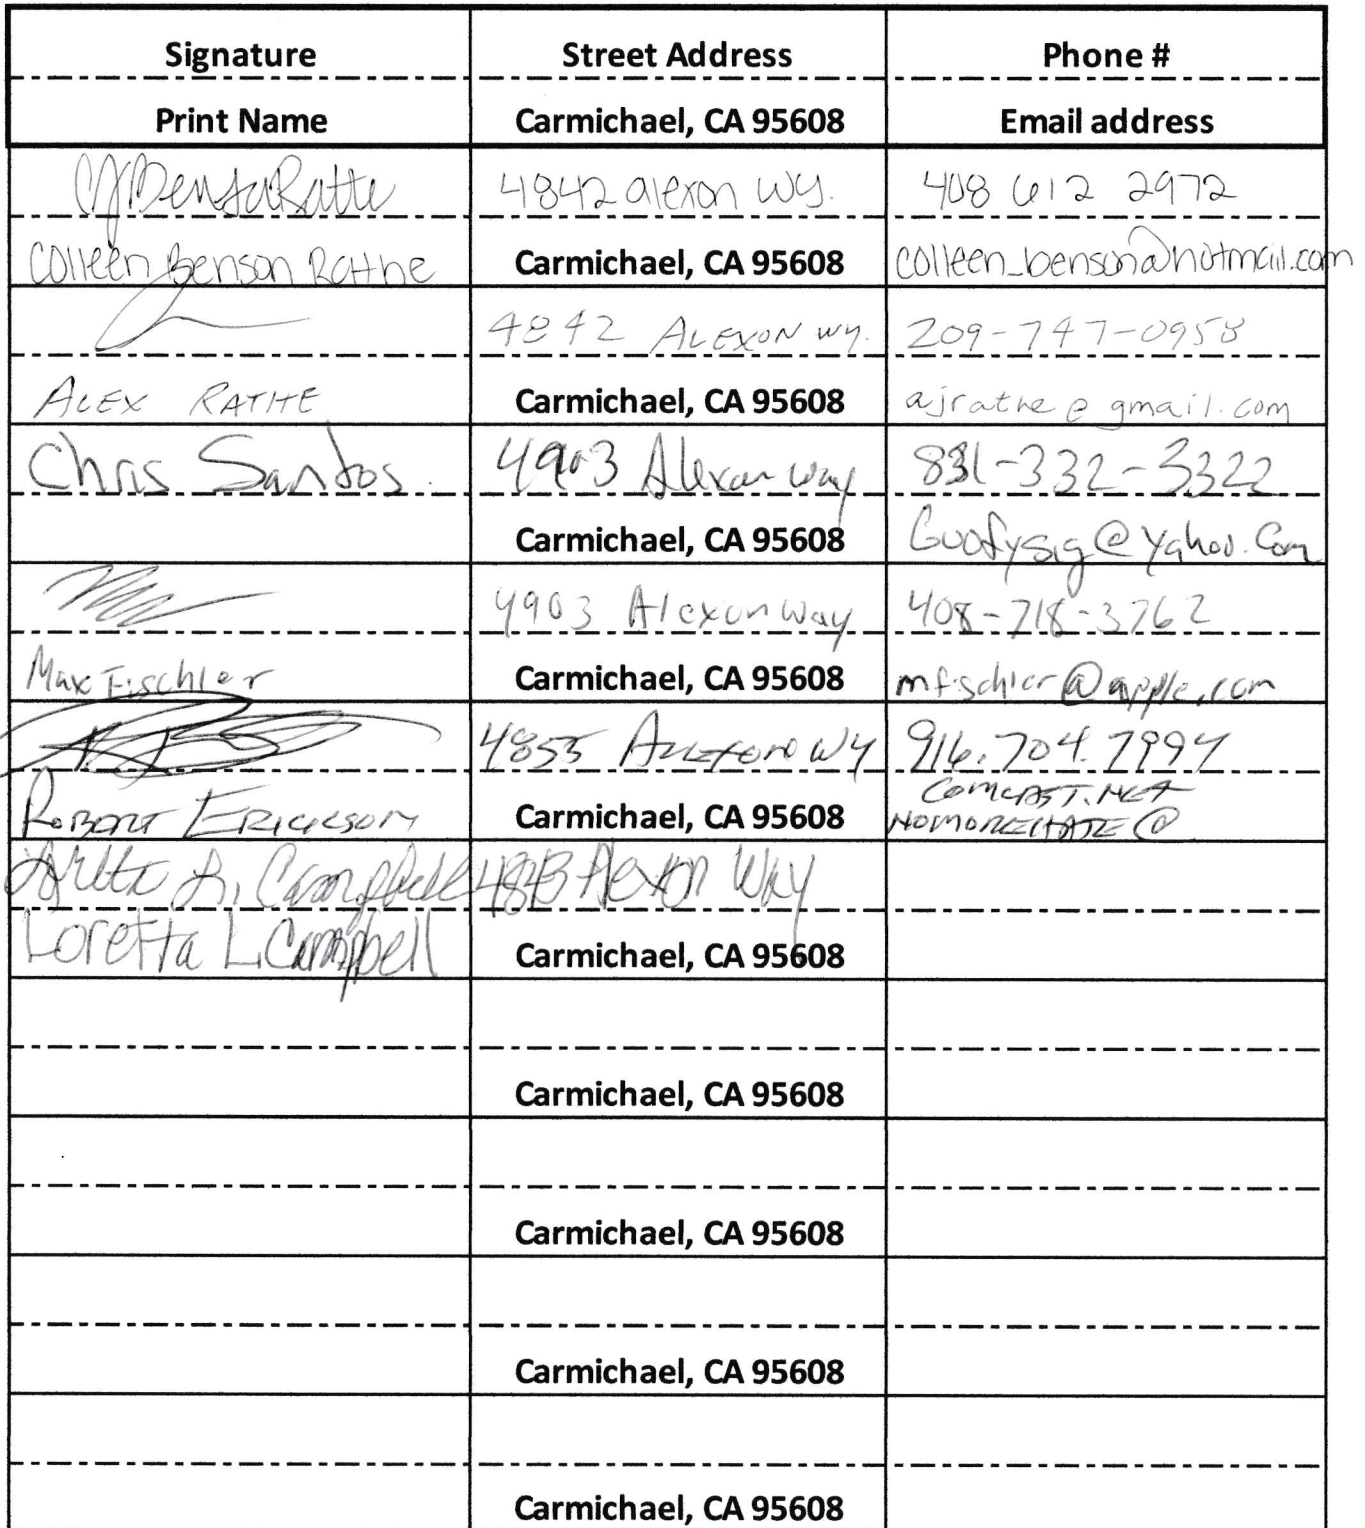 Signature Street Address Phone #
Print Name Carmichael, CA 95608 Email address
CJBensonRathe 4842 alexon wy. 408 612 2972
Colleen Benson Rathe Carmichael, CA 95608 colleen_benson@hotmail.com
4842 ALEXON WY. 209-747-0958
ALEX RATHE Carmichael, CA 95608 ajrathe@gmail.com
Chris Santos. 4903 Alexon way 831-332-3322
Carmichael, CA 95608 Goofysig@yahoo.com
4903 Alexon way 408-718-3762
Max Fischler Carmichael, CA 95608 mfischler@apple.com
4855 ALEXON WY 916.704.7994
COMCAST.NET
ROBERT ERICKSON Carmichael, CA 95608 NOMOREHATE@
Loretta L. Campbell Alexon Way
Loretta L. Campbell Carmichael, CA 95608
Carmichael, CA 95608
Carmichael, CA 95608
Carmichael, CA 95608
Carmichael, CA 95608